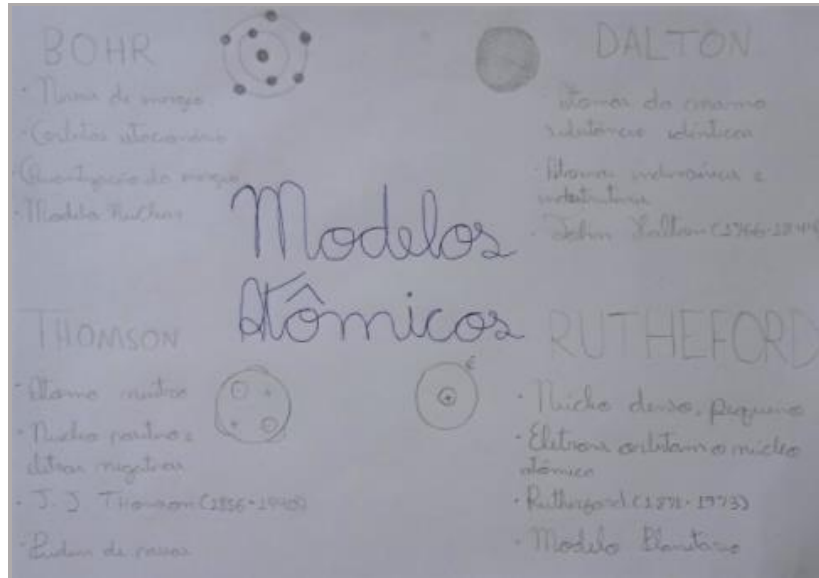 BOHR
· Níveis de energia
· Orbitas estacionário
· Quantização da energia
· Modelo Nuclear
DALTON
· átomos da mesma
substância idênticos
· Átomos indivisíveis e
indestrutíveis
· John Dalton (1766-1844)
Modelos
Atômicos
THOMSON
· Átomo neutro
· Núcleo positivo e
elétrons negativos
· J. J Thomson (1856-1940)
· Pudim de passas
RUTHEFORD
· Núcleo denso, pequeno
· Eletrons orbitam o núcleo
atômico
· Rutherford (1871-1973)
· Modelo Planetário